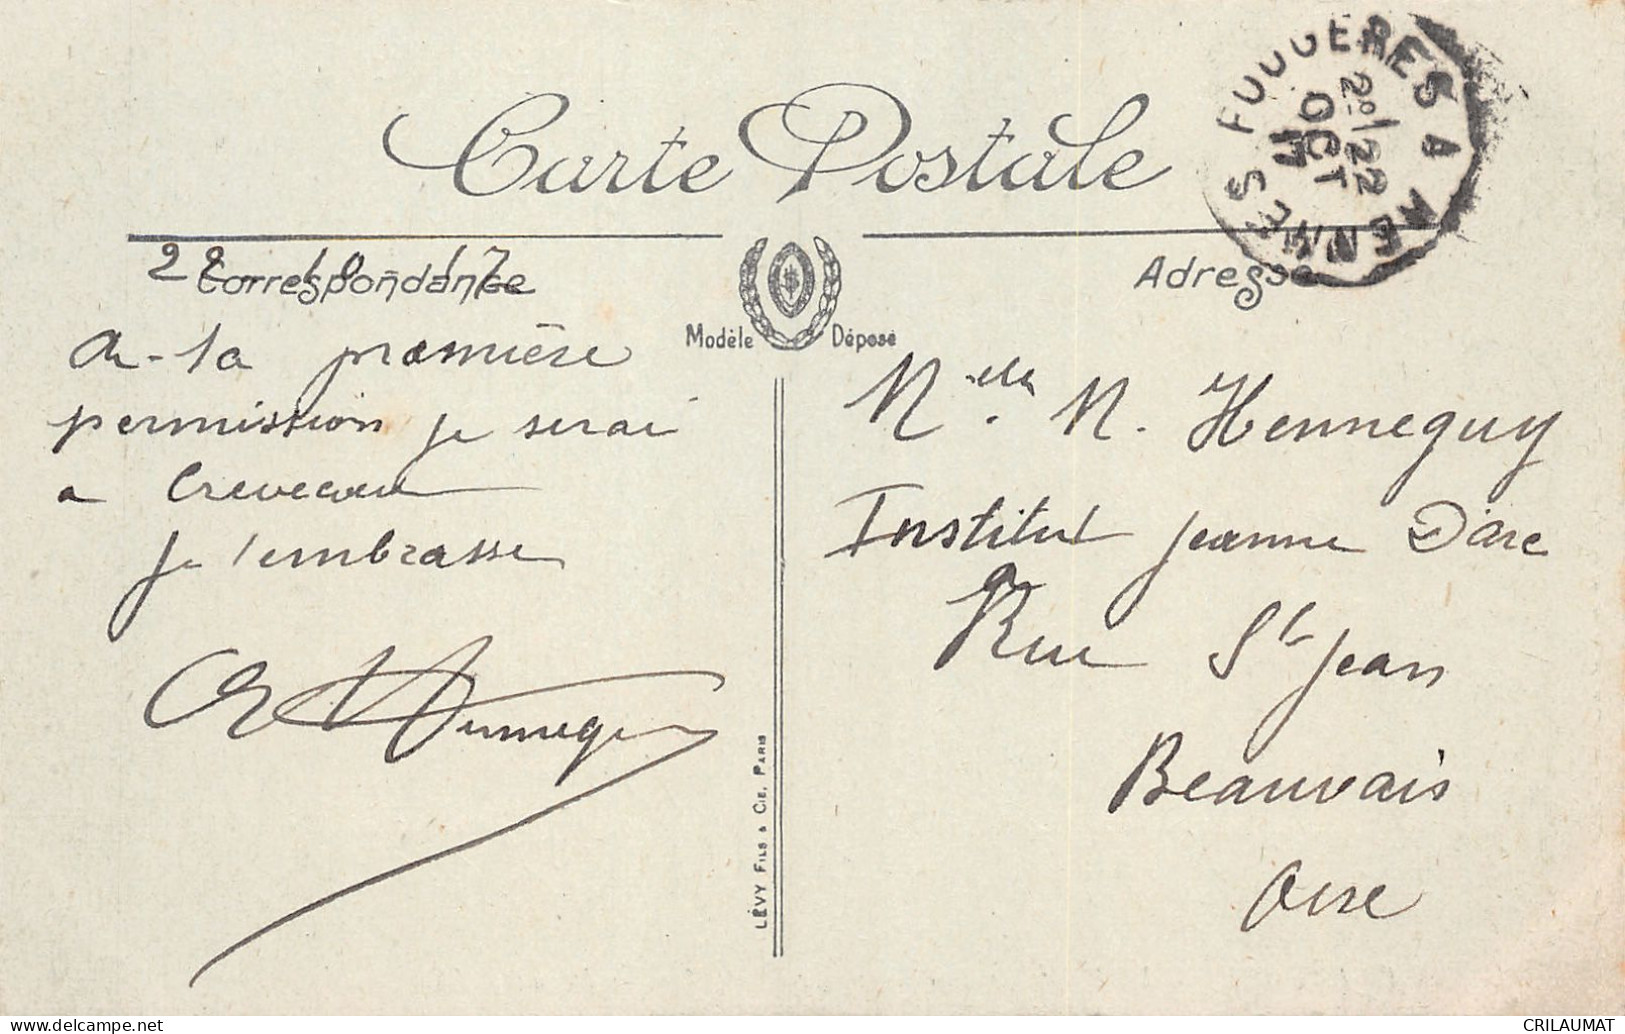 Carte Postale
FOUGERES A RENNES
2º/22
OCT
17
22 - 10 17
Correspondance
Adresse
Modèle Déposé
a la première
permission je serai
a Crevecoeur
je t'embrasse
Ch Hennegu
Melle N. Henneguy
Institut Jeanne D'arc
Rue St Jean
Beauvais
Oise
LÉVY FILS & CIE, PARIS
CRILAUMAT